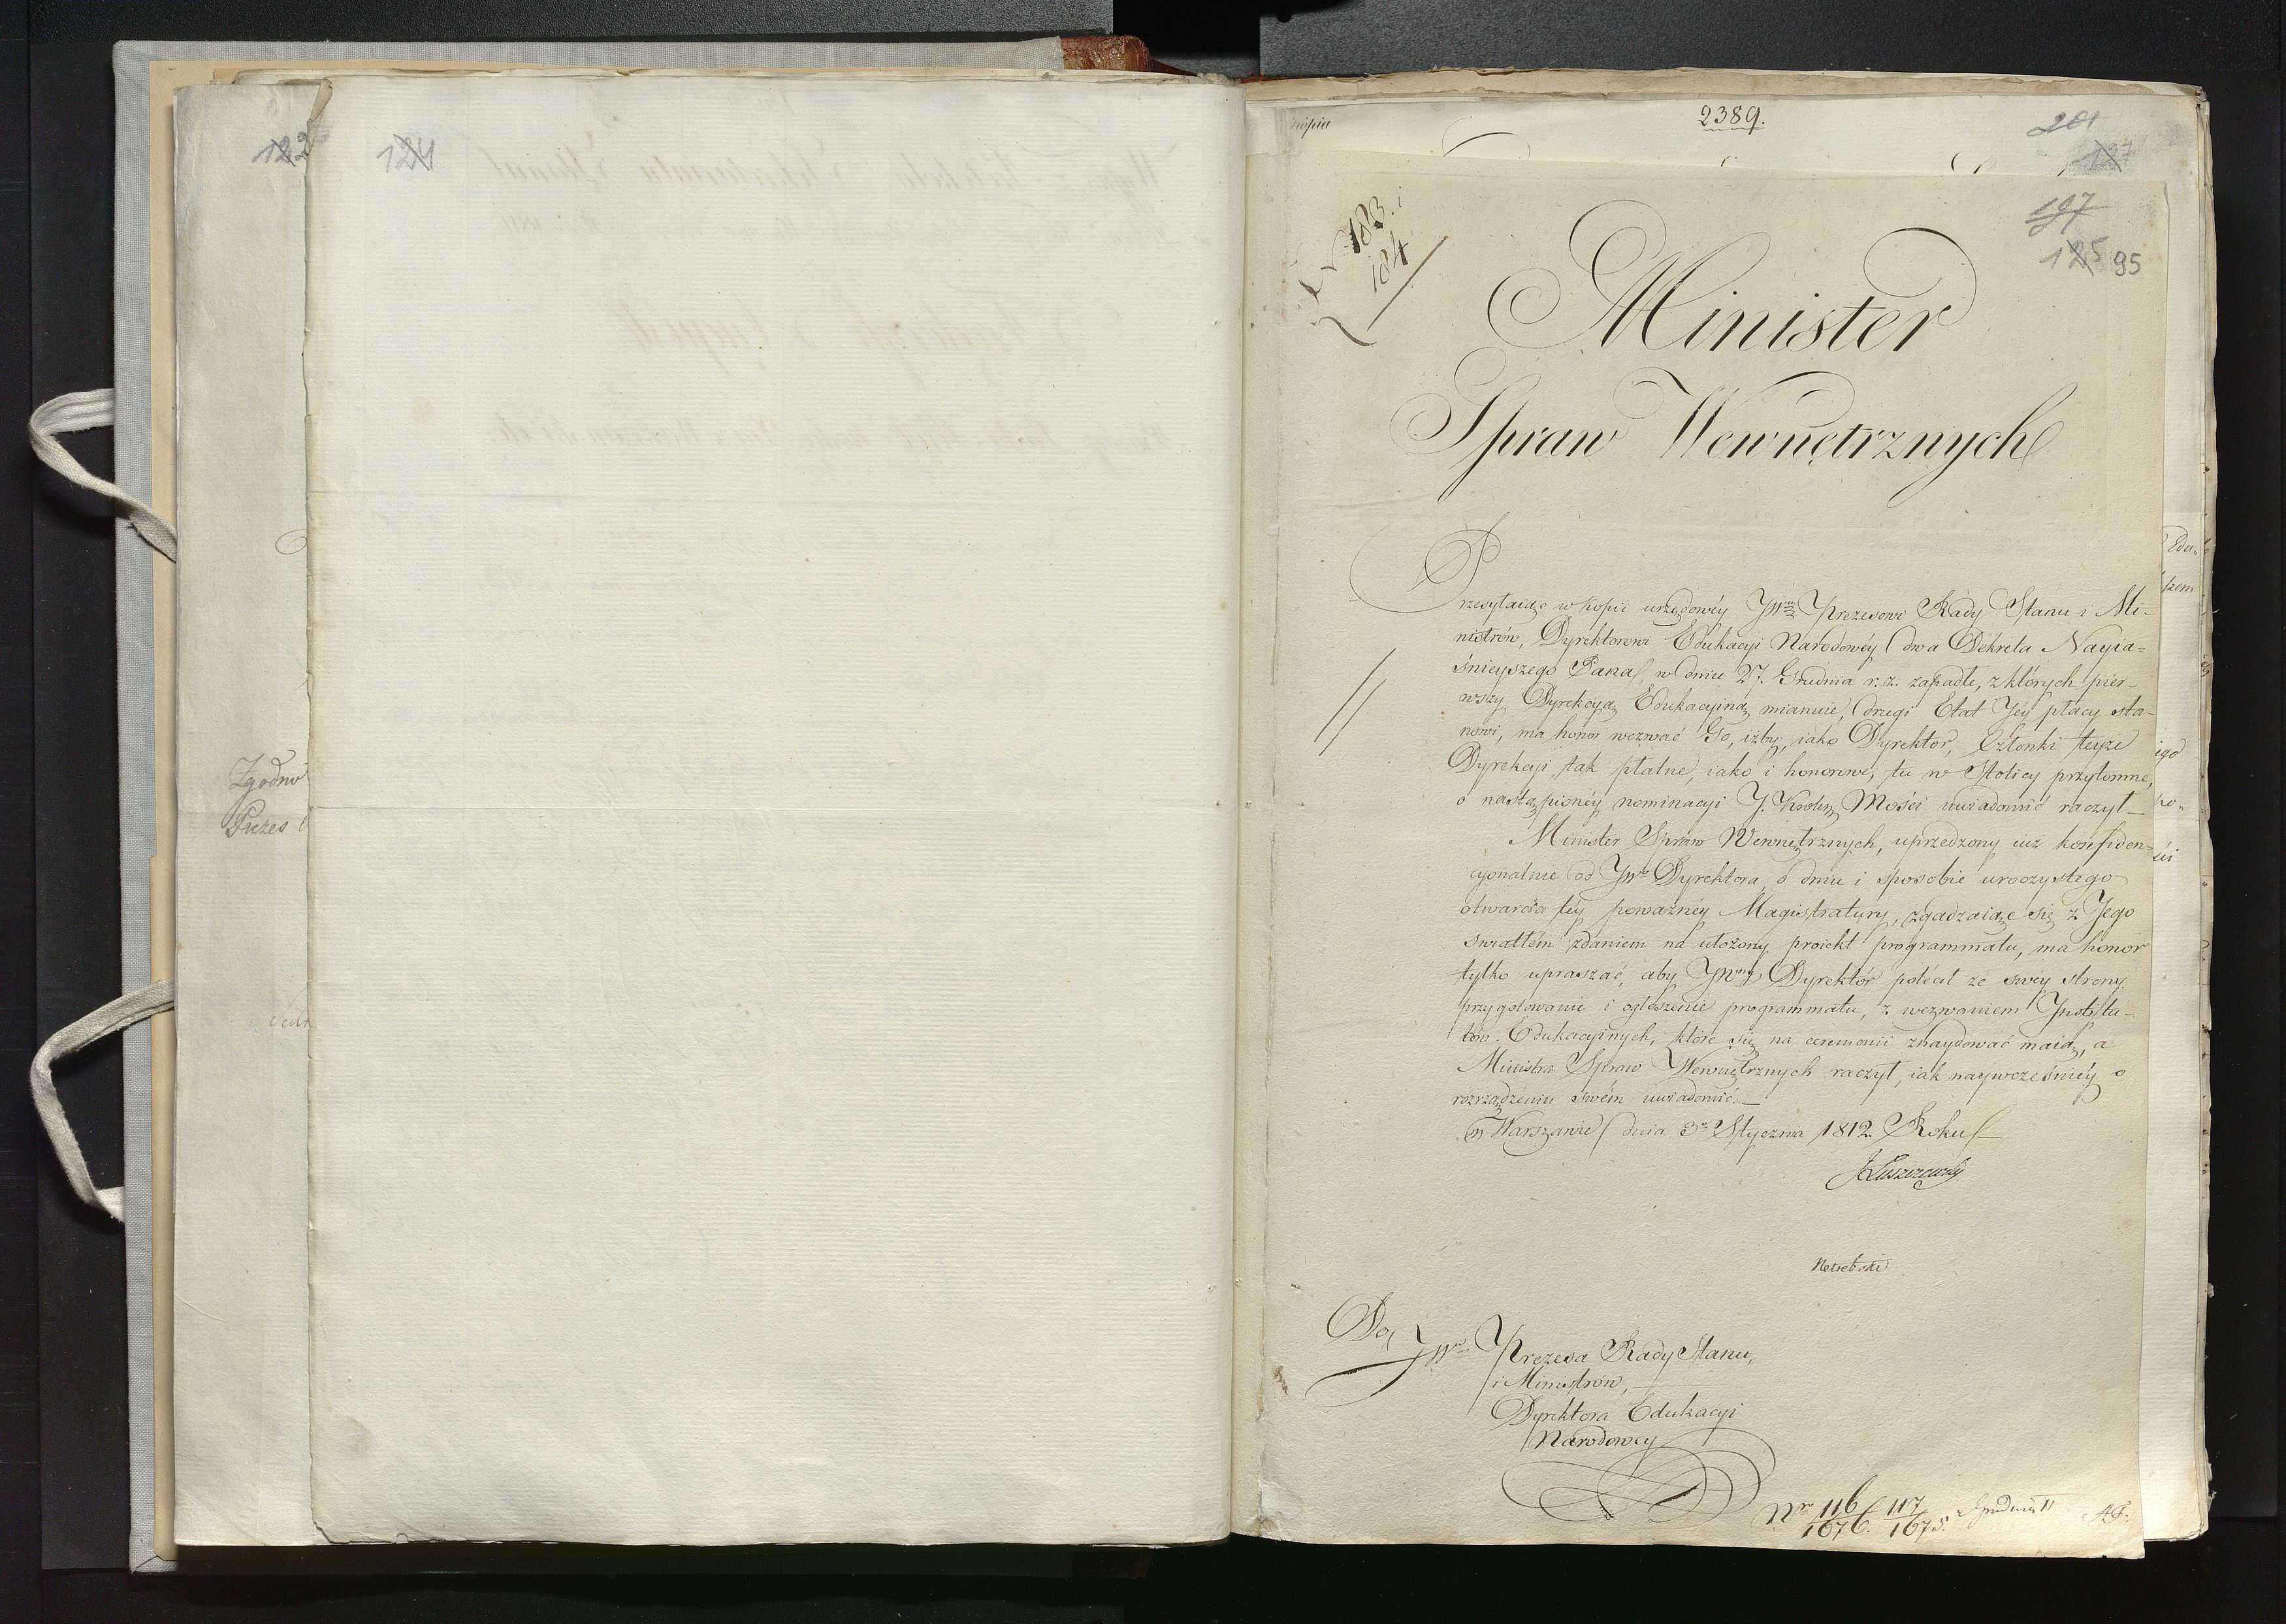 122
124
Zgodno
Prezes
kopia
2389.
201
127
197
125 95
Nr 183.
184
Minister
Spraw Wewnętrznych
Przesyłaiąc w kopii urzędowéy JWmu Prezesowi Rady Stanu i Mi-
nistrów, Dyrektorowi Edukacyi Narodowéy dwa Dekreta Nayia=
śnieyszego Pana, w dniu 27. Grudnia r. z. zapadłe, z których pier-
wszy Dyrekcyą Edukacyiną mianuie, drugi Etat Jéy płacy sta-
nowi, ma honor wezwać Go, iżby, iako Dyrektor, Członki teyże
Dyrekcyi, tak płatne, iako i honorowe, tu w Stolicy przytomne,
o nastąpionéy nominacyi J. Królew. Mości uwiadomić raczył —
Minister Spraw Wewnętrznych, uprzedzony iuż konfiden=
cyonalnie od JWo Dyrektora, o dniu i sposobie uroczystego
otwarcia téy poważnéy Magistratury, zgadzaiąc się z Jego
światłém zdaniem na ułożony proiekt programmatu, ma honor
tylko upraszać, aby JWny Dyrektór polécił ze swey strony
przygotowanie i ogłoszenie programmatu, z wezwaniem Institu-
tów Edukacyinych, które się na ceremonii znaydować maią, a
Ministra Spraw Wewnętrznych raczył, iak naywcześniéy o
rozrządzeniu swém uwiadomić. —
w Warszawie dnia 3o Stycznia 1812. Roku —
JŁuszczewski
Do
JWo Prezesa Rady Stanu,
i Ministrów,
Dyrektora Edukacyi
Narodowey
Nro 116/1676. 117/1675. z Grudnia 11
Edu=